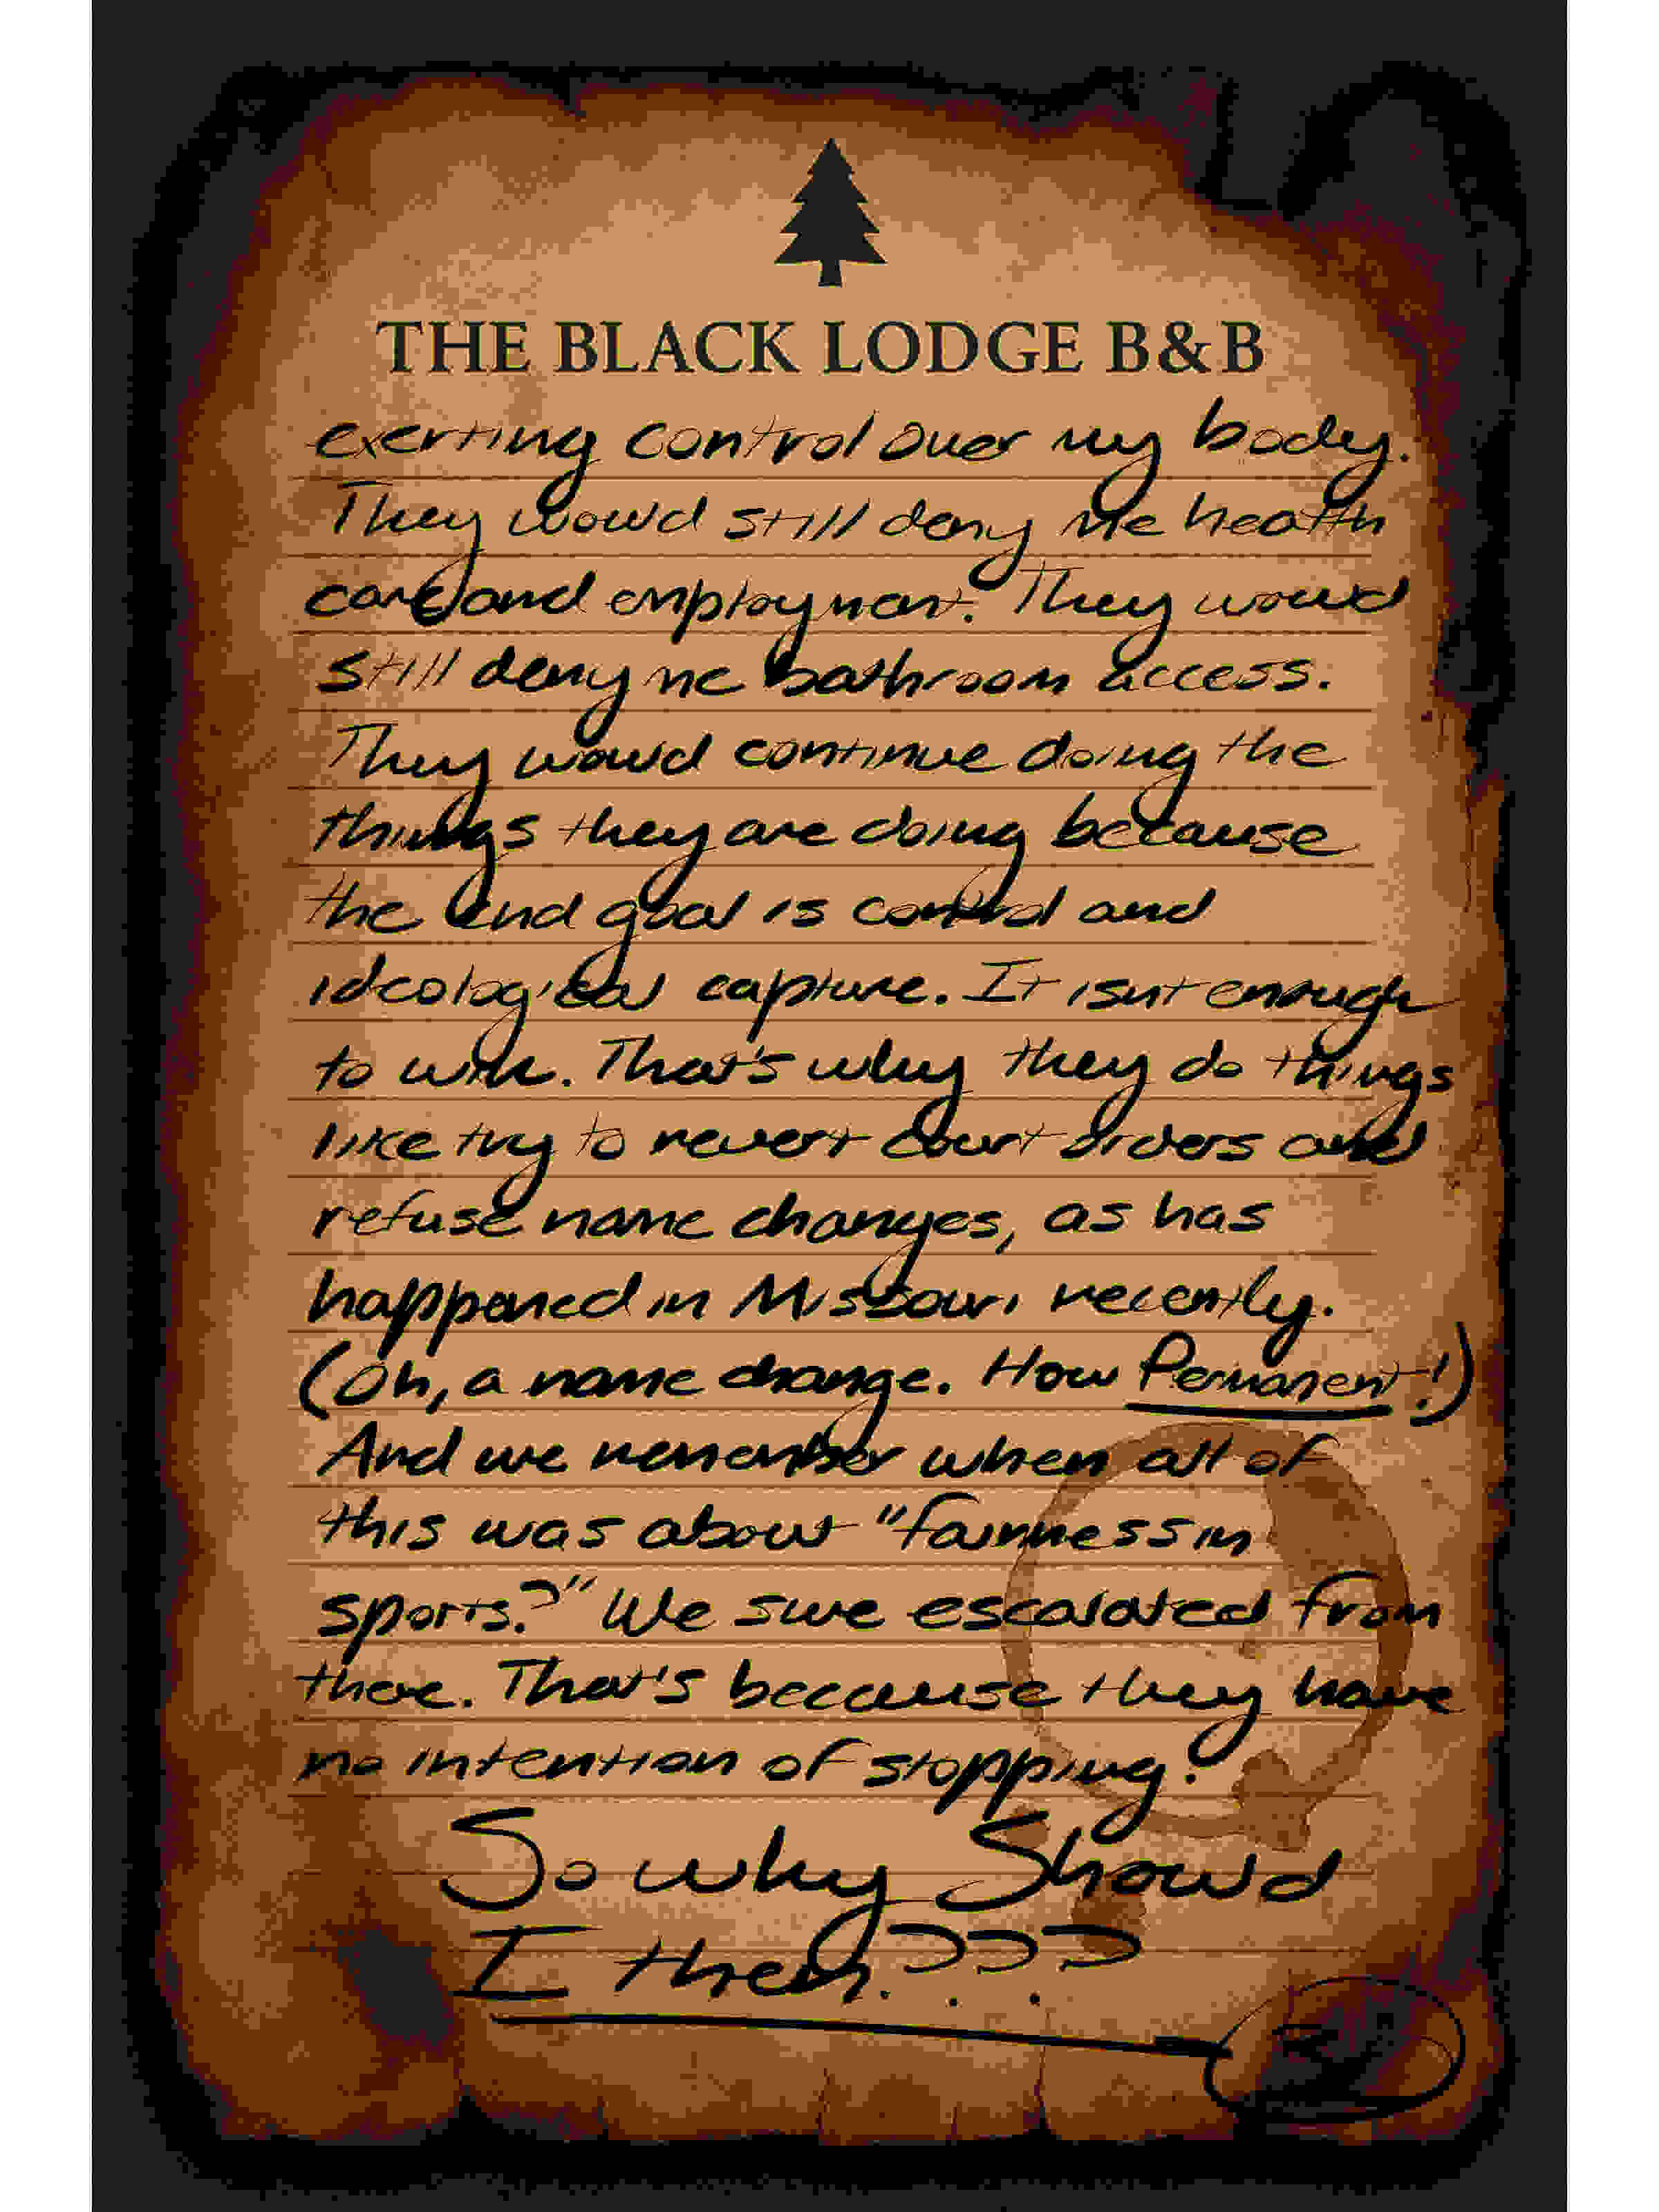 THE BLACK LODGE B&B
exerting control over my body.
They would still deny me health
care and employment. They would
still deny me bathroom access.
They would continue doing the
things they are doing because
the end goal is control and
ideological capture. It isn't enough
to win. That's why they do things
like try to revert court orders and
refuse name changes, as has
happened in Missouri recently.
(Oh, a name change. How Permanent!)
And we remember when all of
this was about "fairness in
sports?" We sure escalated from
there. That's because they have
no intention of stopping.
So why Should
I then???